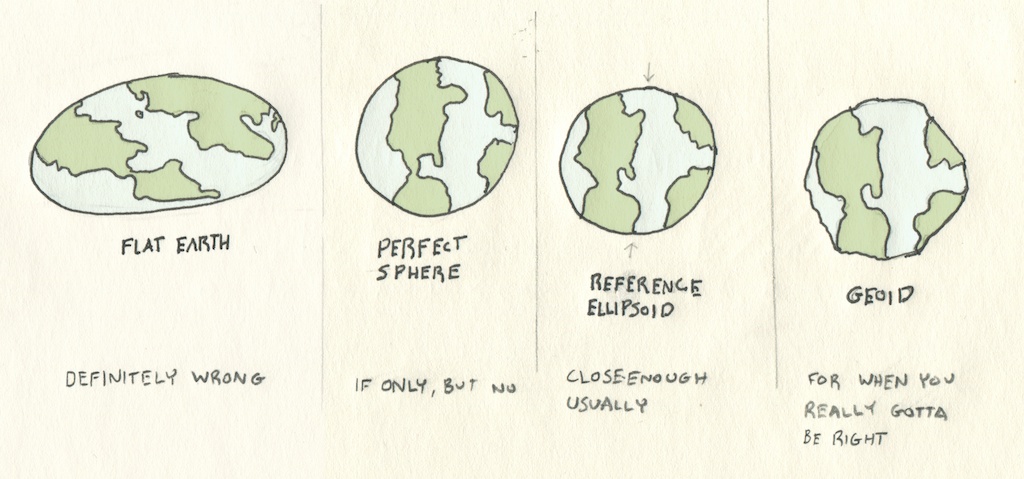 FLAT EARTH
DEFINITELY WRONG
PERFECT
SPHERE
IF ONLY, BUT NO
REFERENCE
ELLIPSOID
CLOSE ENOUGH
USUALLY
GEOID
FOR WHEN YOU
REALLY GOTTA
BE RIGHT